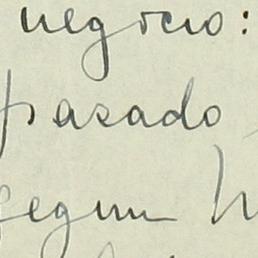 negocio:
pasado
segun